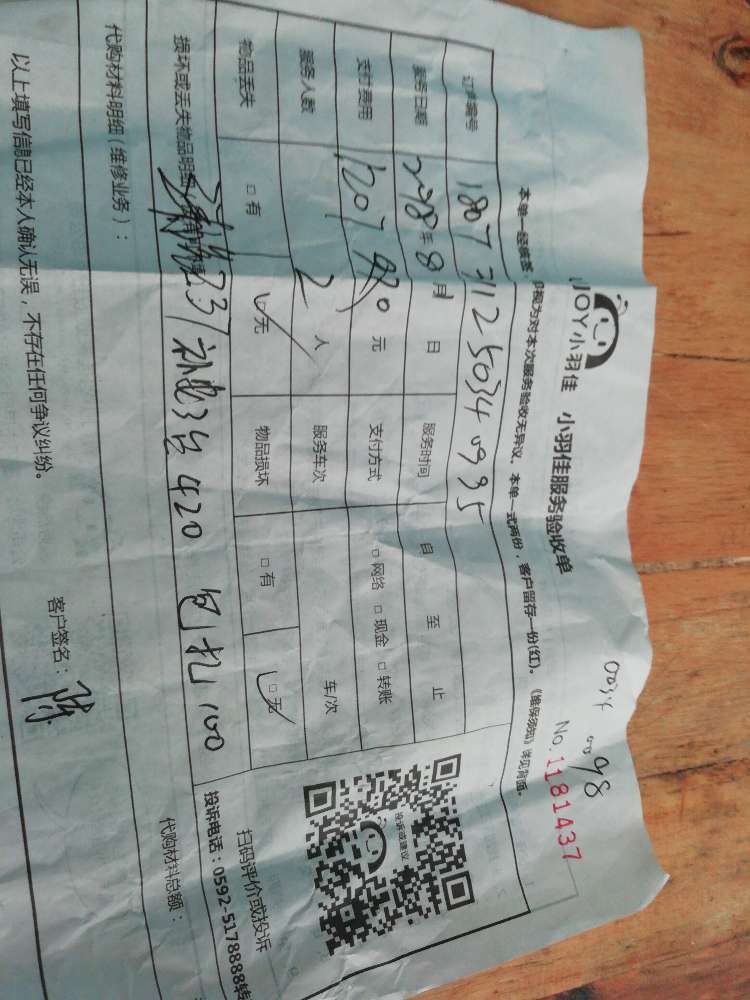 JOY小羽佳 小羽佳服务验收单
No.1181437
本单一经核签,即视为对本次服务验收无异议。本单一式两份,客户留存一份(红)。《维保须知》详见背面。
订单编号 180731250340995
服务日期 2018年8月 日 服务时间 自 至 止
支付费用 1207 元 支付方式 □网络 □现金 □转账
服务人数 2人 服务车次 车/次
物品丢失 □有 □无 物品损坏 □有 □无
损坏或丢失物品明细 237 补贴3台 420 包扎 100
代购材料明细(维修业务): 代购材料总额:
以上填写信息已经本人确认无误,不存在任何争议纠纷。
客户签名:陈
投诉或建议
扫码评价或投诉
投诉电话:0592-5178888转